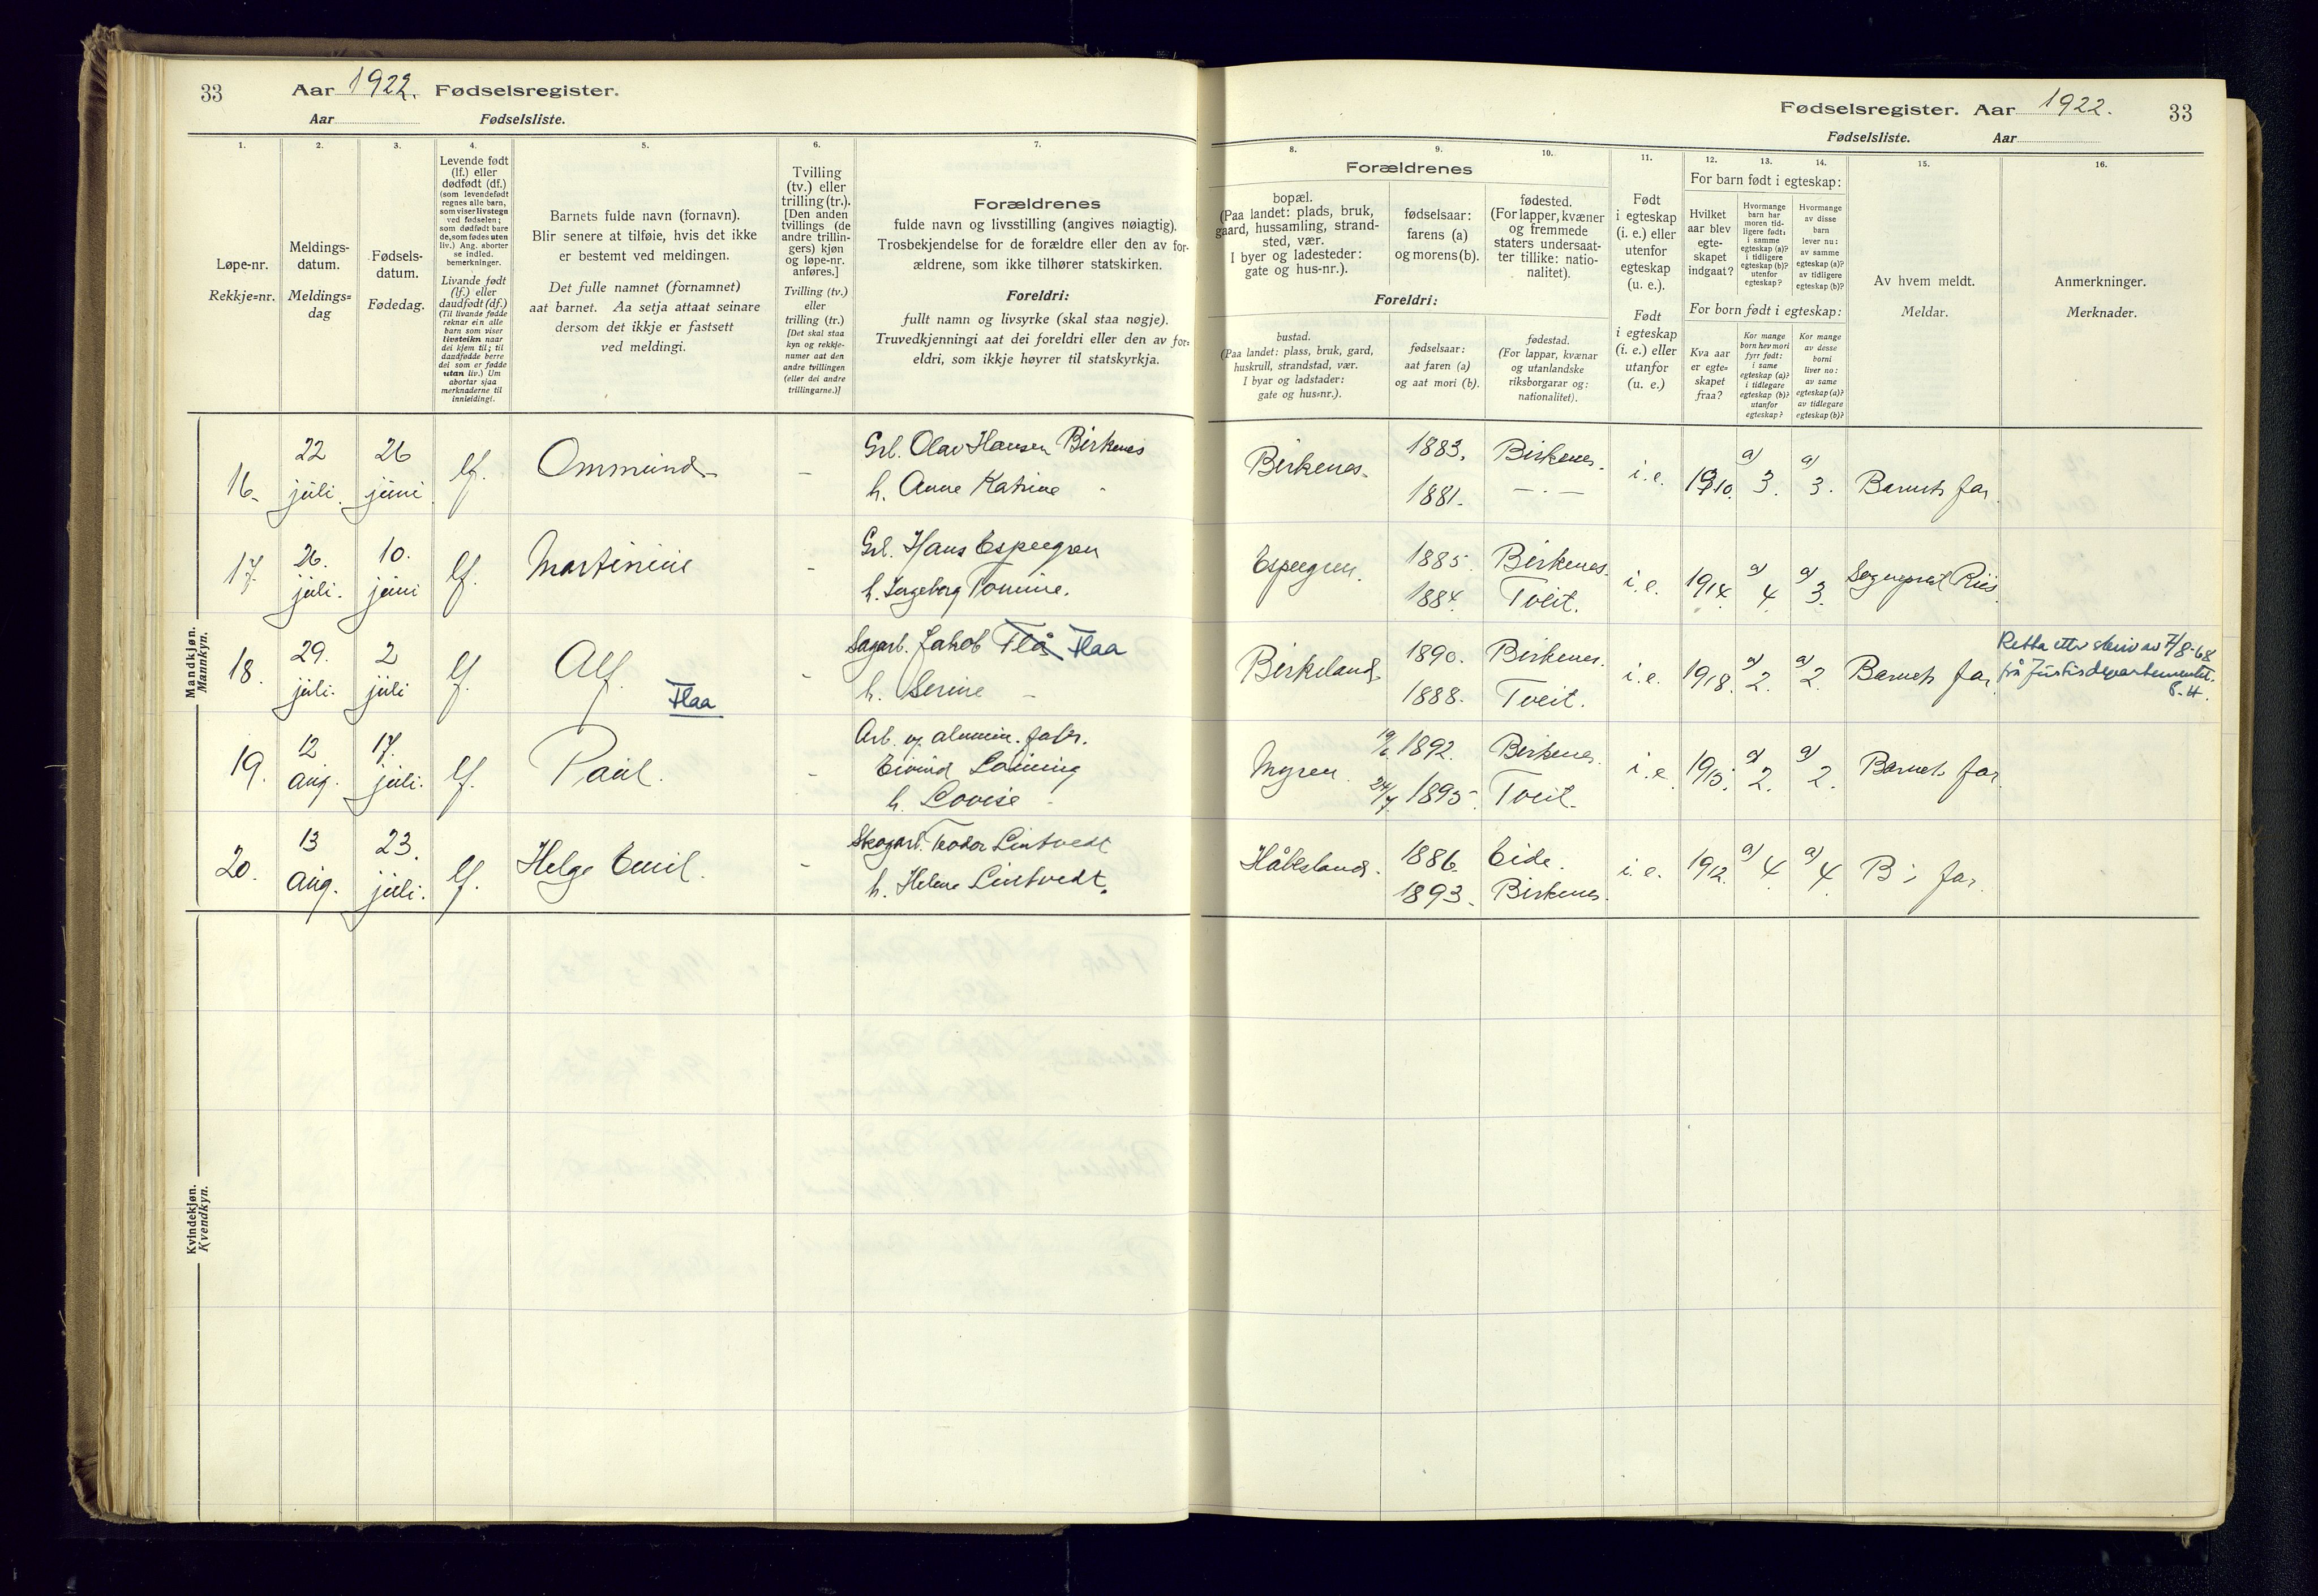 33 Aar 1922. Fødselsregister.
Aar Fødselsliste.
1.
Løpe-nr.
Rekkje=nr.
2.
Meldings-
datum.
Meldings=
dag
3.
Fødsels-
datum.
Fødedag.
4.
Levende født
(lf.) eller
dødfødt (df.)
(som levendefødt
regnes alle barn,
som viser livstegn
ved fødselen;
som dødfødt bare
de, som fødes uten
liv.) Ang. aborter
se indled.
bemerkninger.
Livande født
(lf.) eller
daudfødt (df.)
(Til livande fødde
reknar ein alle
barn som viser
livsteikn naar
dei kjem til; til
daudfødde berre
dei som er fødde
utan liv.) Um
abortar sjaa
merknaderne til
innleidingi.
5.
Barnets fulde navn (fornavn).
Blir senere at tilføie, hvis det ikke
er bestemt ved meldingen.
Det fulle namnet (fornamnet)
aat barnet. Aa setja attaat seinare
dersom det ikkje er fastsett
ved meldingi.
6.
Tvilling
(tv.) eller
trilling (tr.).
[Den anden
tvillings (de
andre trillin-
gers) kjøn
og løpe-nr.
anføres.]
Tvilling (tv.)
eller
trilling (tr.)
[Det skal staa
kyn og rekkje-
numer aat den
andre tvillingen
(eller dei andre
trillingarne.)]
7.
Forældrenes
fulde navn og livsstilling (angives nøiagtig).
Trosbekjendelse for de forældre eller den av for-
ældrene, som ikke tilhører statskirken.
Foreldri:
fullt namn og livsyrke (skal staa nøgje).
Truvedkjenningi aat dei foreldri eller den av for=
eldri, som ikkje høyrer til statskyrkja.
Mandkjøn.
Mannkyn.
16. 22 juli. 26 juni lf. Ommund - Grb. Olav Hansen Birkenes
h. Anne Katrine -
17. 26. juli. 10. juni lf. Martinius - Grb. Hans Espegren
h. Ingeborg Tomine.
18. 29. juli. 2 juli lf. Alf. Flaa - Sagarb. Jakob Flå Flaa
h. Serine -
19. 12 aug. 17. juli. lf. Paul. - Arb. v. alumin. fabr.
Eivind
h. Lovise -
20. 13 aug. 23. juli. lf. Helge Emil. - Skogarb. Teodor Lintvedt
h. Helene Lintvedt.
Kvindekjøn.
Kvendkyn.
Fødselsregister. Aar 1922. 33
Fødselsliste. Aar
8. 9. 10.
Forældrenes
bopæl.
(Paa landet: plads, bruk,
gaard, hussamling, strand-
sted, vær.
I byer og ladesteder:
gate og hus-nr.).
fødselsaar:
farens (a)
og morens (b).
fødested.
(For lapper, kvæner
og fremmede
staters undersaat-
ter tillike: natio-
nalitet).
Foreldri:
bustad.
(Paa landet: plass, bruk, gard,
huskrull, strandstad, vær.
I byar og ladstader:
gate og hus=nr.).
fødselsaar:
aat faren (a)
og aat mori (b).
fødestad.
(For lappar, kvænar
og utanlandske
riksborgarar og:
nationalitet).
11.
Født
i egteskap
(i. e.) eller
utenfor
egteskap
(u. e.).
Født
i egteskap
(i. e.) eller
utanfor
(u. e.)
12. 13. 14.
For barn født i egteskap:
Hvilket
aar blev
egte-
skapet
indgaat?
Hvormange
barn har
moren tid-
ligere født:
i samme
egteskap (a)?
i tidligere
egteskap (b)?
utenfor
egteskap?
Hvormange
av disse
barn
lever nu:
av samme
egteskap (a)?
av tidligere
egteskap (b)?
For born født i egteskap:
Kva aar
er egte=
skapet
fraa?
Kor mange
born hev mori
fyrr født:
i same
egteskap (a)?
i tidlegare
egteskap (b)?
utanfor
egteskap?
Kor mange
av desse
borni
liver no:
av same
egteskap (a)?
av tidlegare
egteskap (b)?
15.
Av hvem meldt.
Meldar.
16.
Anmerkninger.
Merknader.
Birkenes. 1883. Birkenes. i. e. 1910. a) 3. a) 3. Barnets far.
1881. — . —
Espegren. 1885. Birkenes. i. e. 1914. a) 4. a) 3. Sogneprest Riis.
1884. Tveit.
Birkeland. 1890. Birkenes. i. e. 1918. a) 2. a) 2. Barnets far. Retta etter skriv av 7/8-68
frå Justisdepartementet.
1888. Tveit.
Myren. 1892. Birkenes. i. e. 1915. a) 2. a) 2. Barnets far.
24/7 1895. Tveit.
Håbesland. 1886. Eide. i. e. 1912. a) 4. a) 4. B; far.
1893. Birkenes.